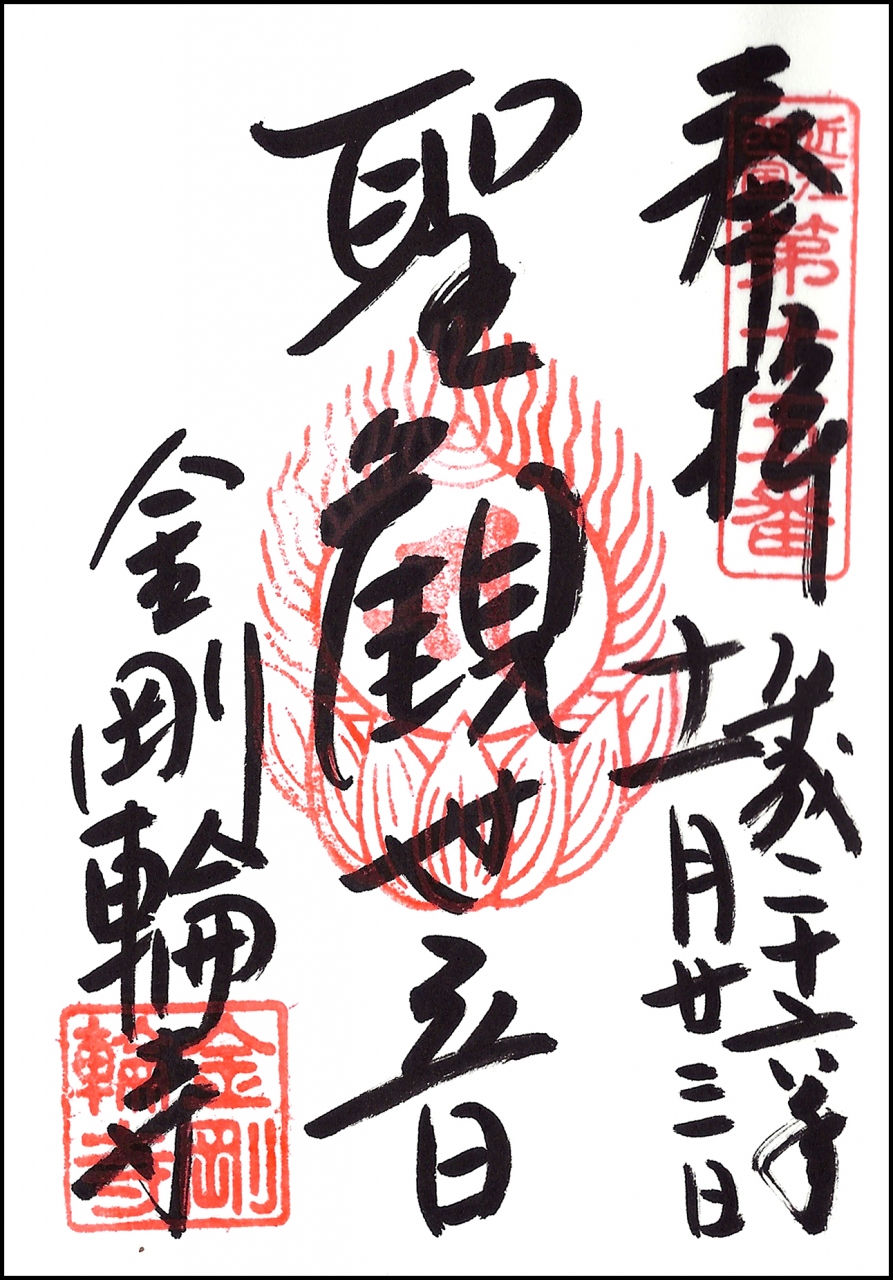 奉拝
近江西国
第十五番
二十二
十一月廿三日
聖観世音
金剛輪寺
金剛輪寺